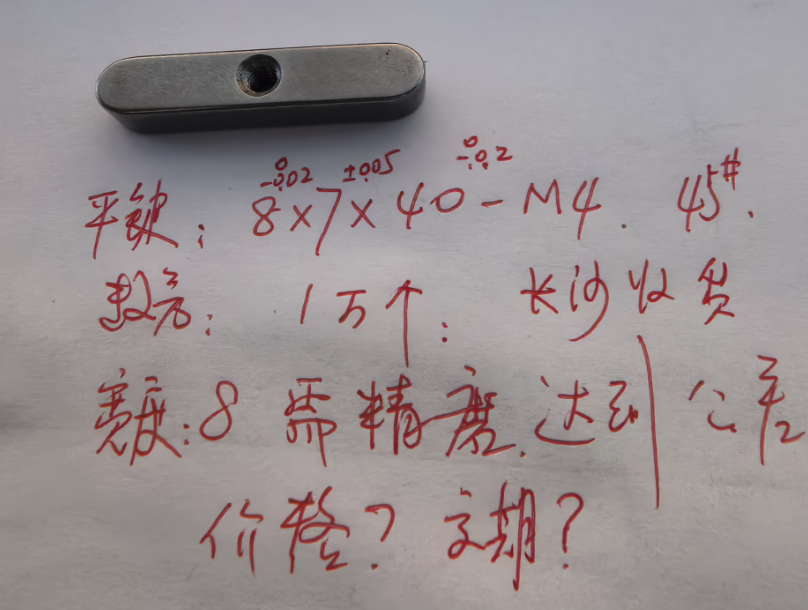 平键: 8 0 -0.02 ×7 ±0.05 ×40 0 -0.2 -M4. 45#.
数量: 1万个: 长沙收货
宽度:8 需精磨.达到公差
价格?交期?